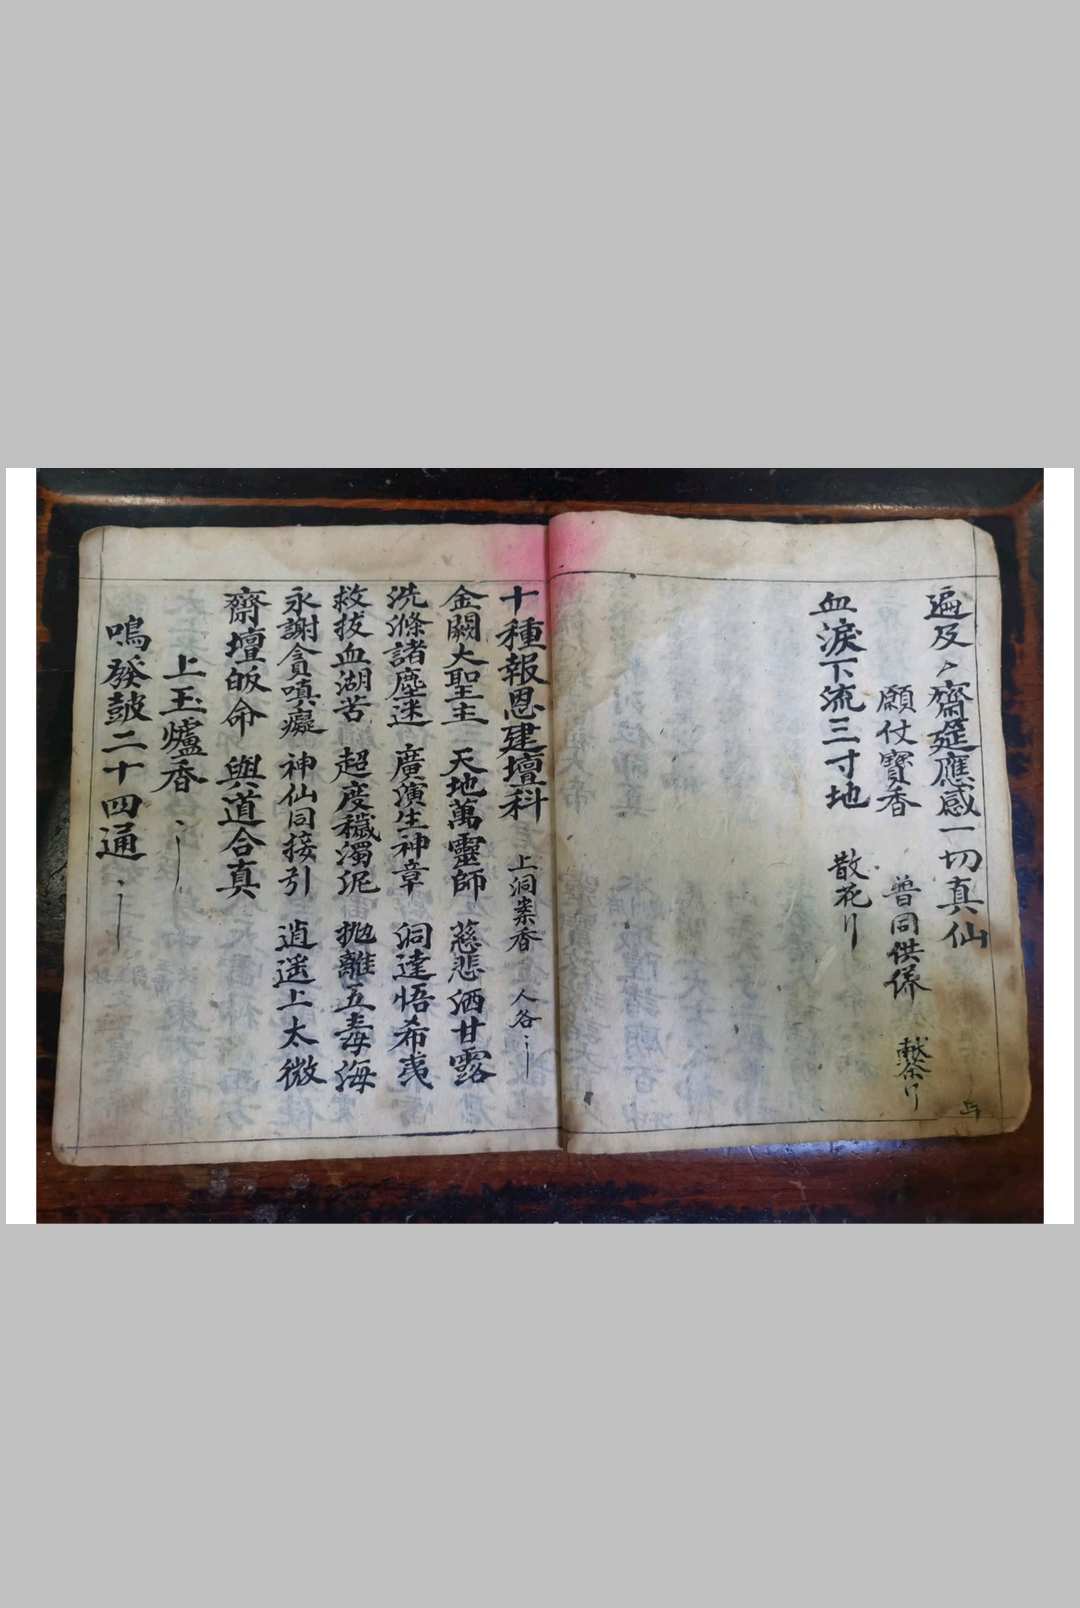 遍及〻齋筵應感一切真仙
願仗寶香 普同供養
血淚下流三寸地 散花
十種報恩建壇科 上洞案香 人各
金闕大聖主 天地萬靈師 慈悲洒甘露
洗滌諸塵迷 廣演生神章 洞達悟希夷
救拔血湖苦 超度穢濁泥 拋離五毒海
永謝貪嗔癡 神仙同接引 逍遥上太微
齋壇皈命 與道合真
上玉爐香
鳴發鼓二十四通